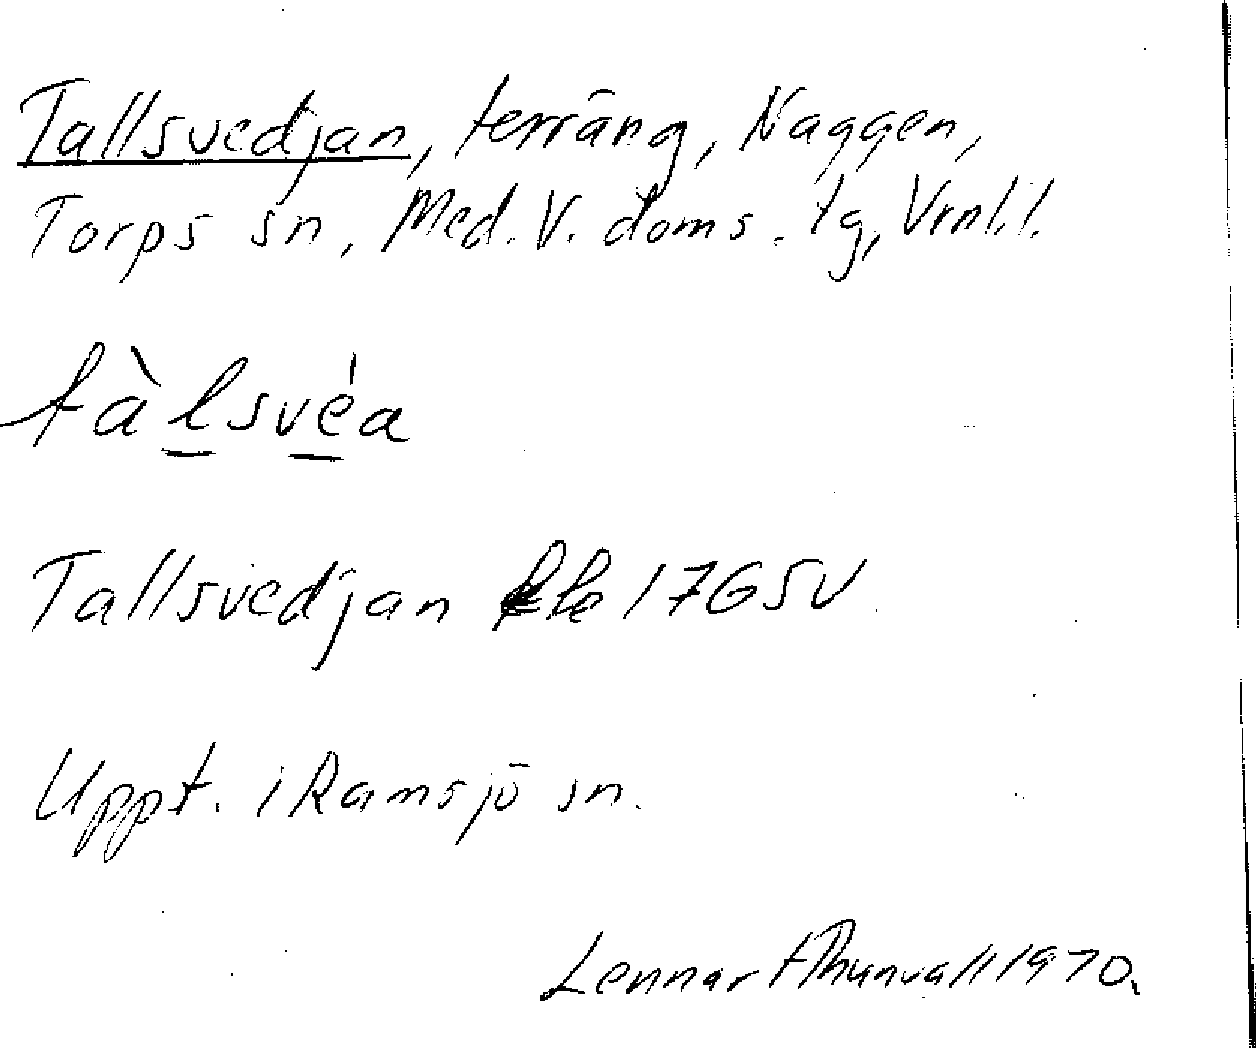 Tallsvedjan, terräng, Naggen,
Torps sn, Med. V. doms. tg, Vrnl.l.
tàlsvéa
Tallsvedjan 17G SV
Uppt. i Ramsjö sn.
Lennart Thunvall 1970.